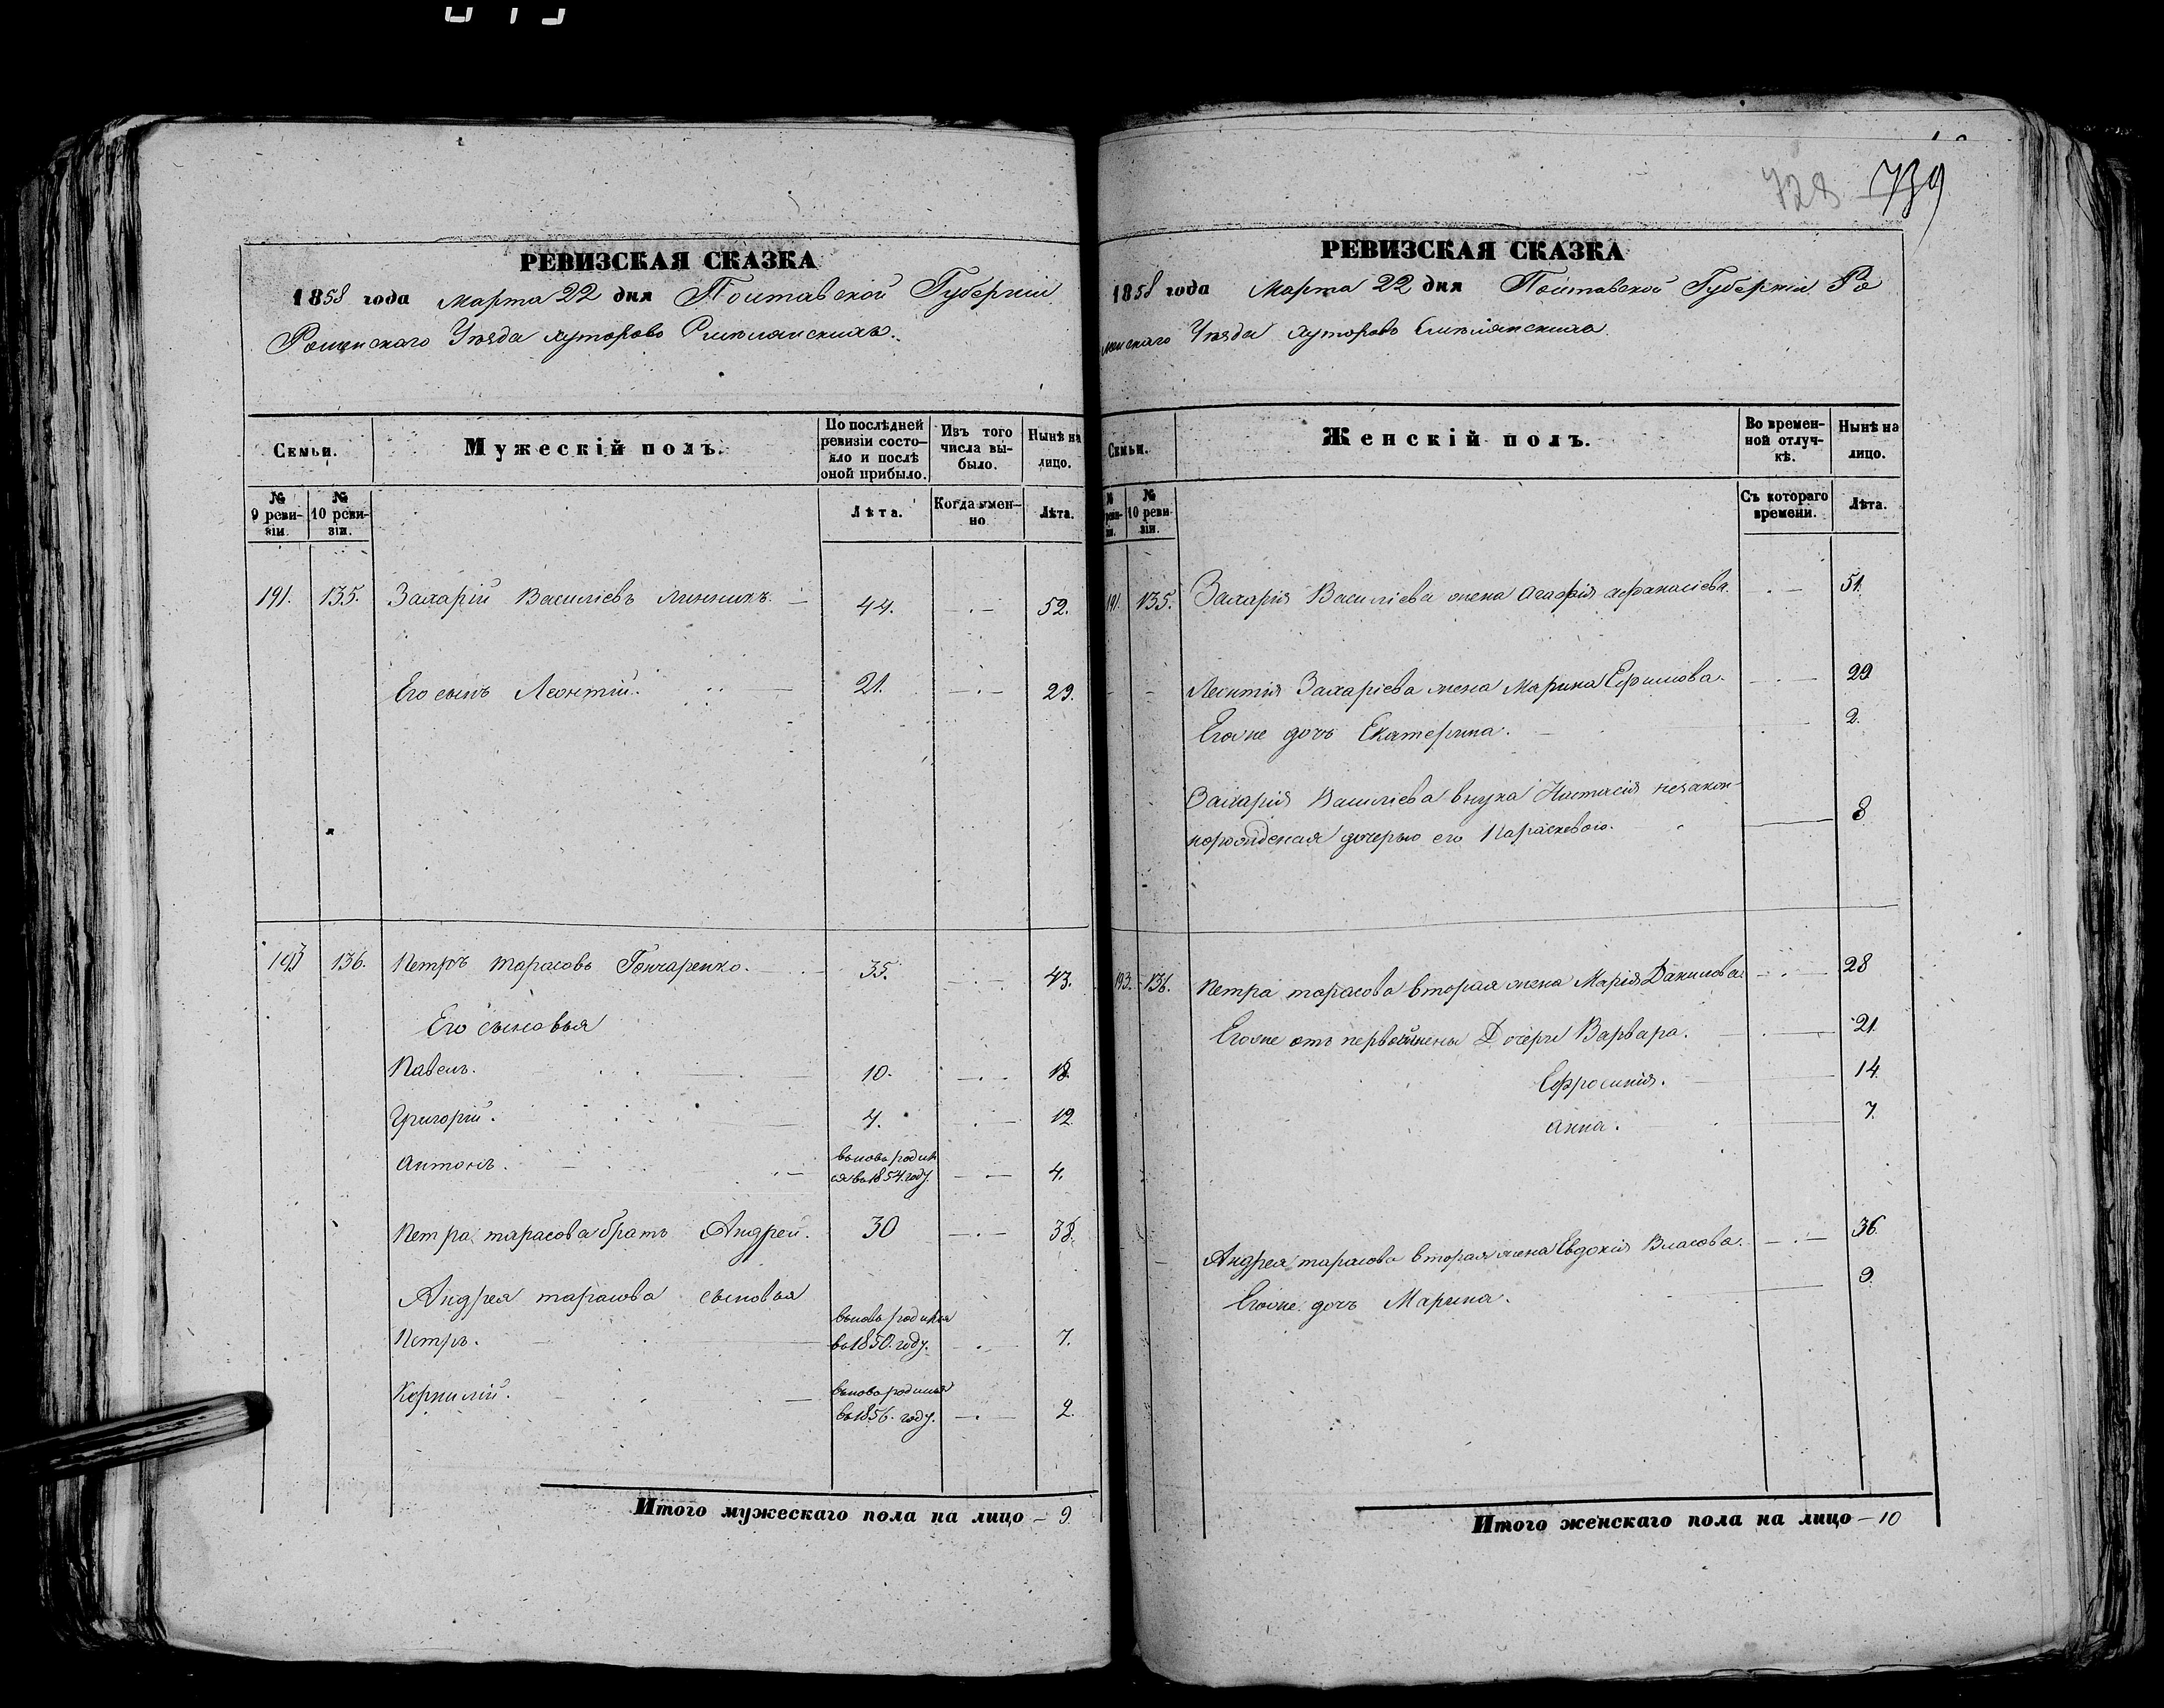 728 739
РЕВИЗСКАЯ СКАЗКА
1858 года Марта 22 дня Полтавской Губерніи
Роменскаго Уѣзда хуторовъ
Семьи.
Мужескій полъ.
По послѣдней ревизіи состояло и послѣ оной прибыло.
Изъ того числа выбыло.
Нынѣ на лицо.
№ 9 ревизіи
№ 10 ревизіи.
Лѣта.
Когда именно
Лѣта.
191. 135. Захарій Василіевъ Линникъ. — 44. — 52.
Его сынъ Леонтій. — 21. — 29.
193 136. Петръ Тарасовъ Гончаренко. — 35. — 43.
Его сыновья
Павелъ. 10. — 18.
Григорій. 4. — 12
Антонъ. вновь родил
ся въ 1854. году. — 4.
Петра Тарасова братъ Андрей. 30 — 38.
Андрея Тарасова сыновья
Петръ. вновь родился
въ 1850. году. — 7.
Корнилій. вновь родился
въ 1856. году. — 2.
Итого мужескаго пола на лицо — 9
РЕВИЗСКАЯ СКАЗКА
1858 года Марта 22 дня Полтавской Губерніи Ро
менскаго Уѣзда хуторовъ
Семьи.
Женскій полъ.
Во временной отлучкѣ.
Нынѣ на лицо.
№ 10 ревизіи.
Съ котораго времени.
Лѣта.
191. 135. Захарія Василіева жена Агафія Афанасіева. — 51.
Леонтія Захаріева жена Марина Ефимова. — 29
Егоже дочь Екатерина. — 2.
Захарія Василіева внука Настасія незакон-
норожденая дочерью его Параскевою. — 8
193. 136. Петра Тарасова вторая жена Марія Данилова. — 28
Егоже отъ первой жены Дочери Варвара. — 21.
Ефросинія. — 14.
Анна. — 7.
Андрея Тарасова вторая жена Евдокія Власова. — 36.
Егоже дочь Марина. — 9.
Итого женскаго пола на лицо — 10